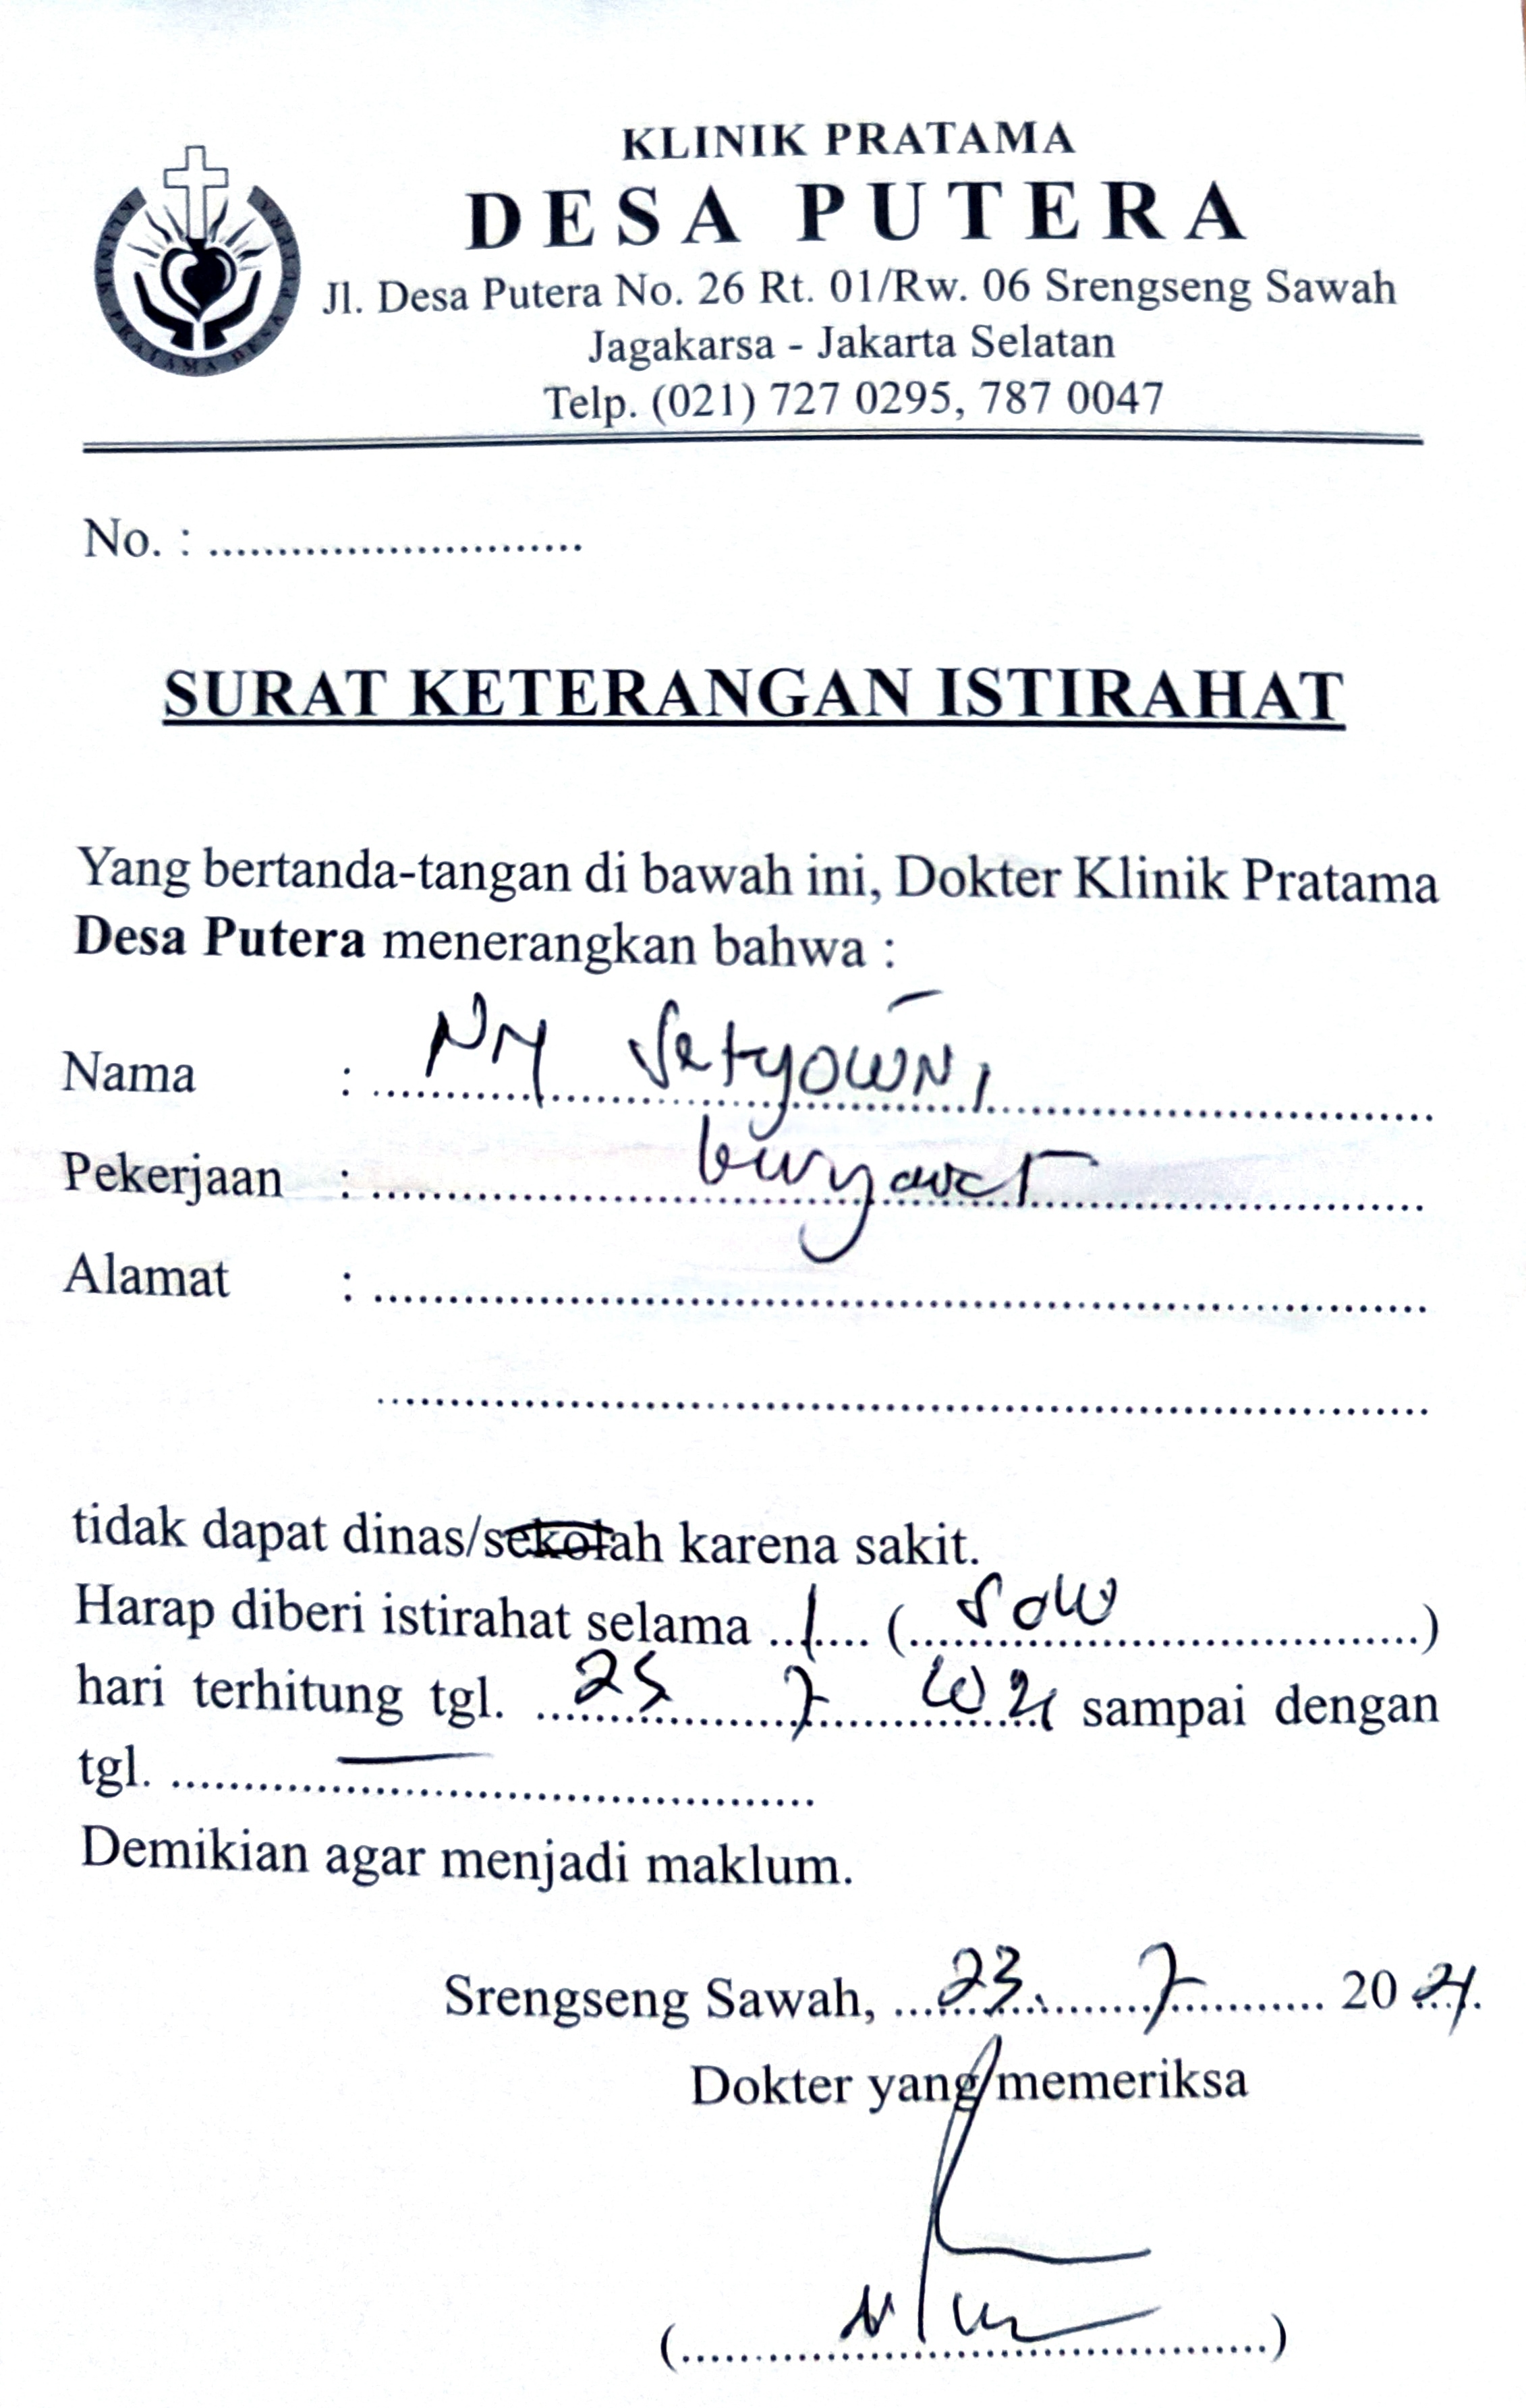 KLINIK PRATAMA
DESA PUTERA
KLINIK PRATAMA DESA PUTERA
Jl. Desa Putera No. 26 Rt. 01/Rw. 06 Srengseng Sawah
Jagakarsa - Jakarta Selatan
Telp. (021) 727 0295, 787 0047
No. : ...........................
SURAT KETERANGAN ISTIRAHAT
Yang bertanda-tangan di bawah ini, Dokter Klinik Pratama
Desa Putera menerangkan bahwa :
Nama : NY
Pekerjaan :
Alamat :
tidak dapat dinas/sekolah karena sakit.
Harap diberi istirahat selama 1 (satu)
hari terhitung tgl. 7 sampai dengan
tgl. —
Demikian agar menjadi maklum.
Srengseng Sawah, 23 7 20
Dokter yang memeriksa